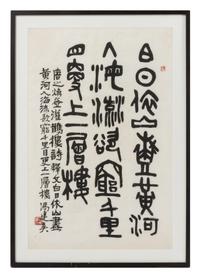 白日依山盡黃河
入海流欲窮千里
目更上一層樓
唐王之渙登鸛鵲樓詩釋文白日依山盡
黃河入海流欲窮千里目更上一層樓馮建吳